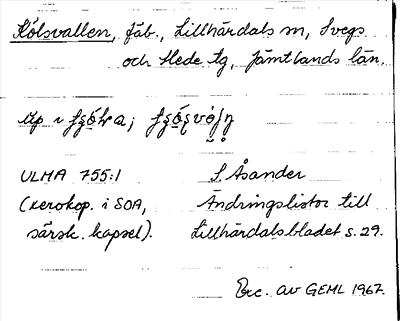 Kölsvallen, fäb., Lillhärdals sn, Svegs
och Hede tg, Jämtlands län.
ULMA 755:1
(xerokop. i SOA,
särsk. kapsel).
S. Åsander
Ändringslistor till
Lillhärdalsbladet s. 29.
Exc. av GEML 1967.